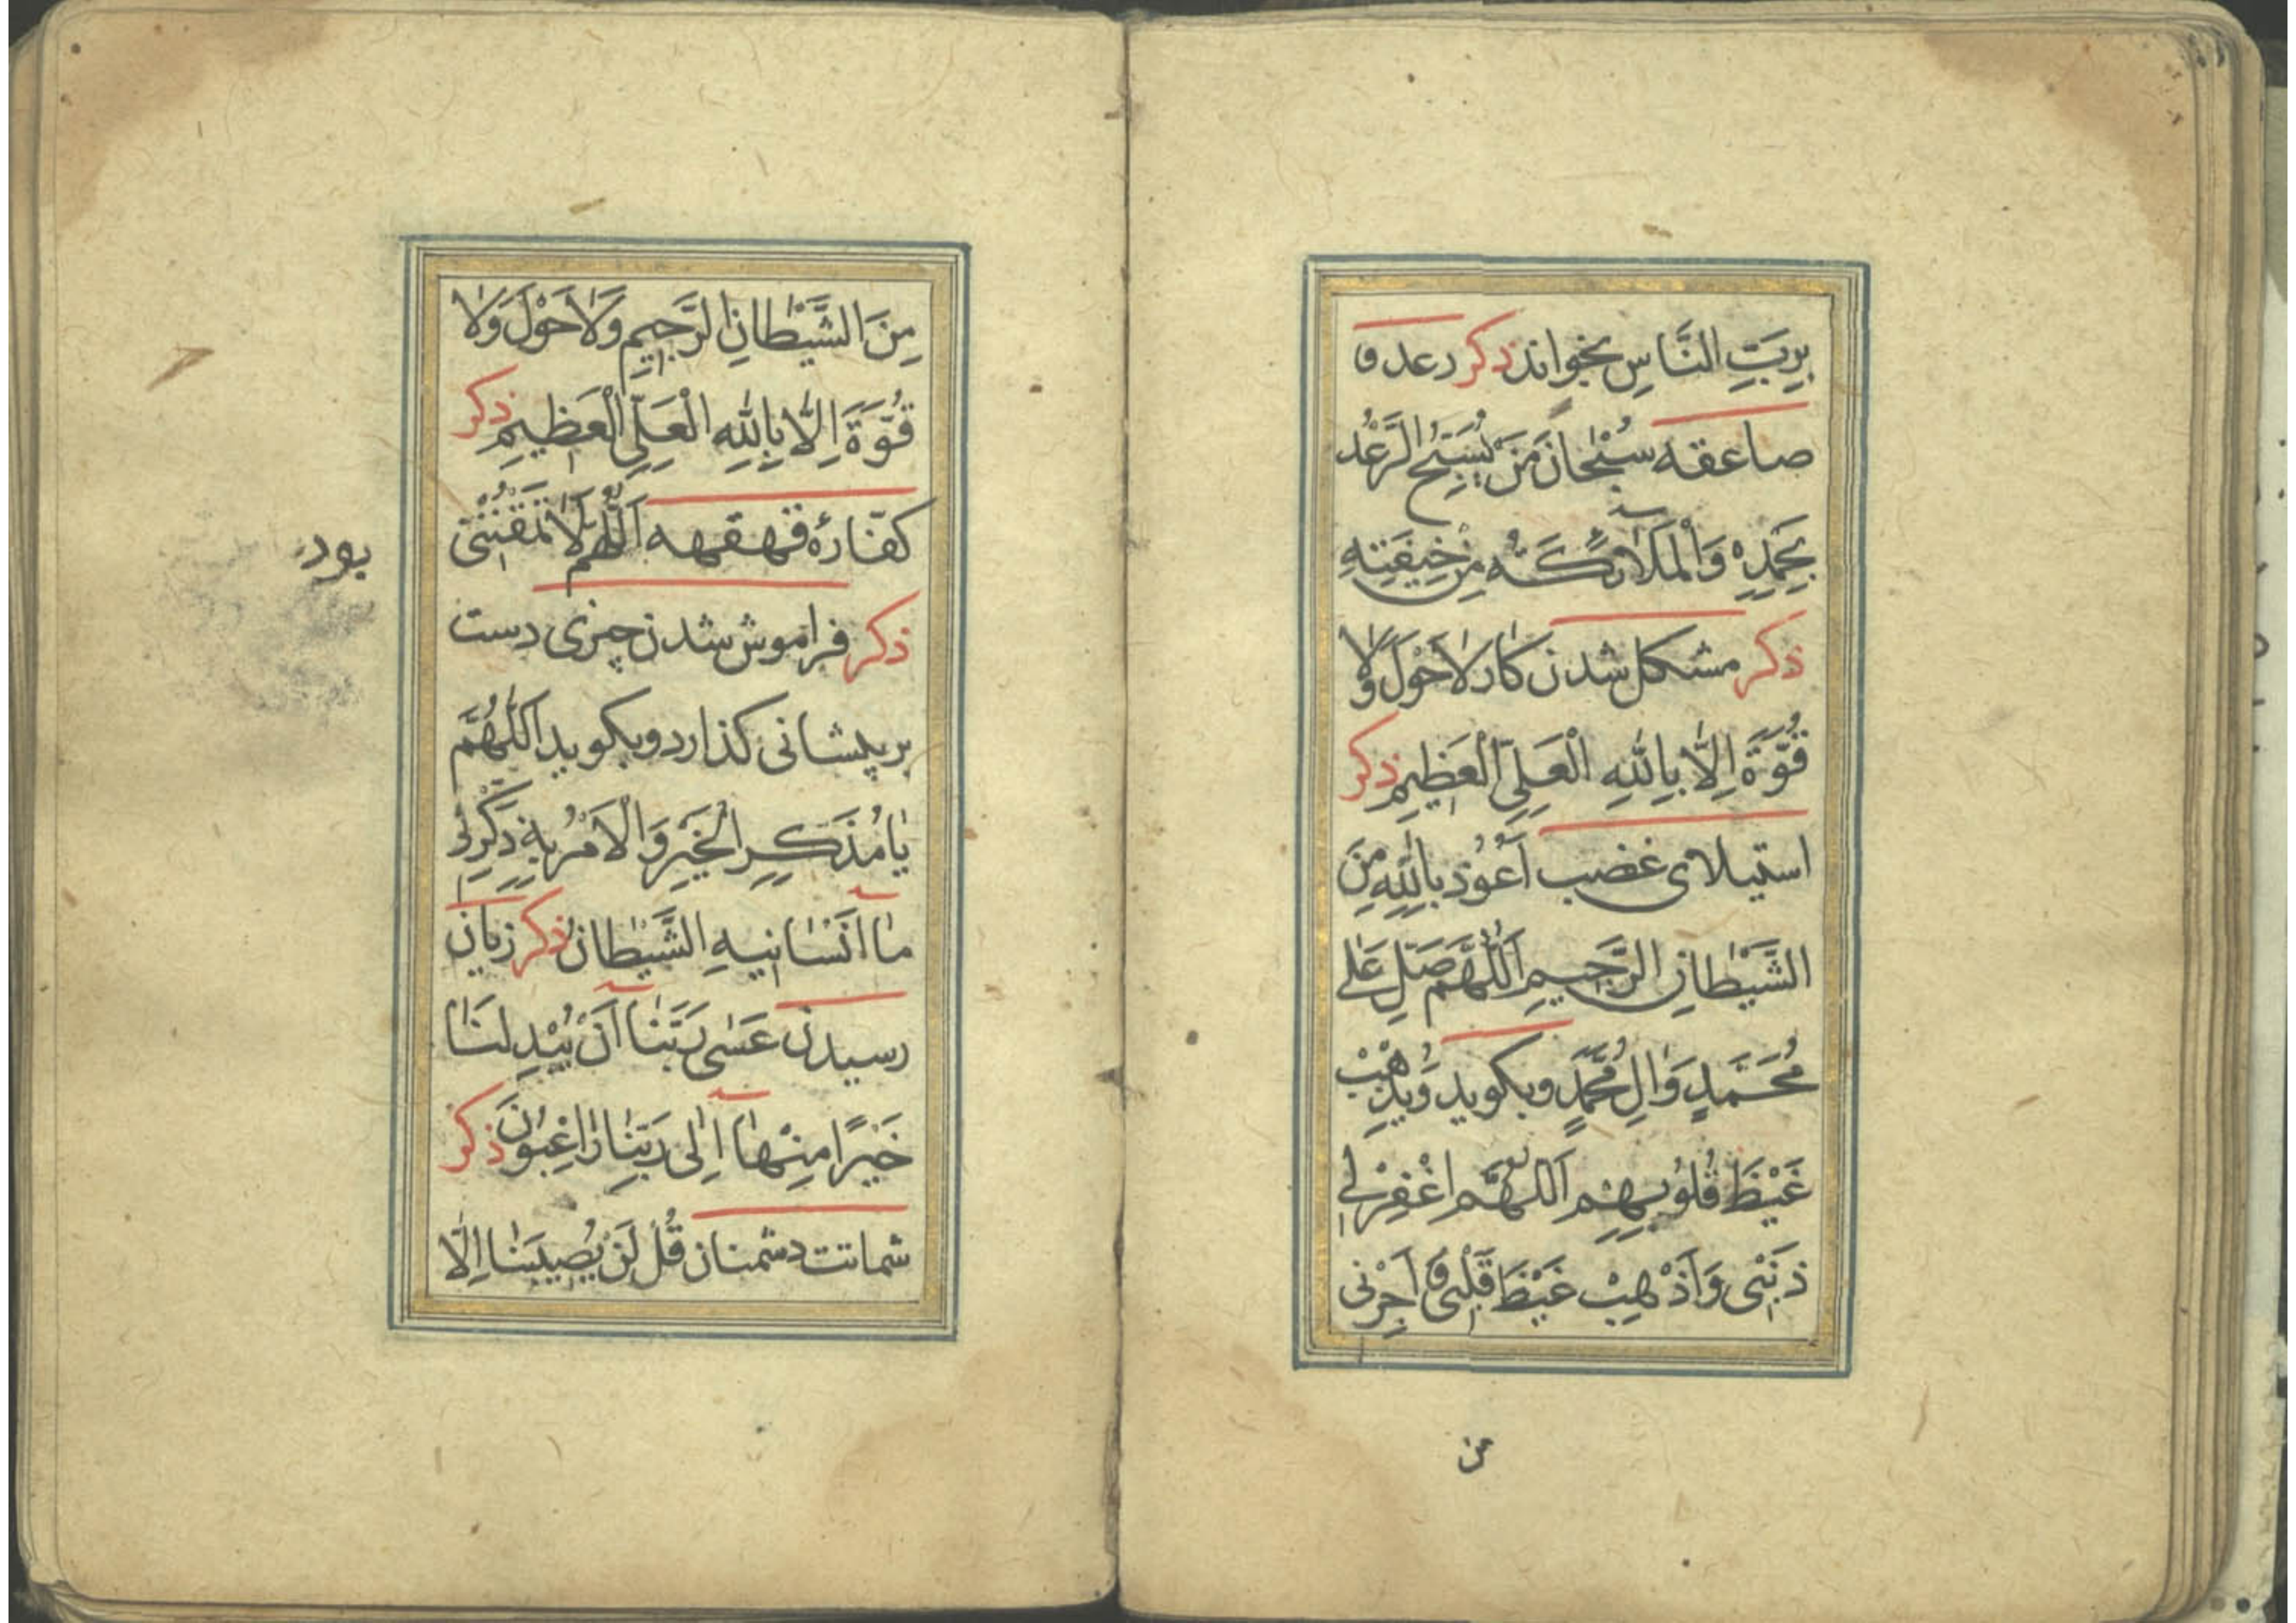 بِرَبِّ النَّاسِ بخواند ذکر رعد و
صاعقه سُبْحانَ مَنْ يُسَبِّحُ الرَّعْدُ
بِحَمْدِهِ وَالْمَلَائِكَةُ مِنْ خِيفَتِهِ
ذکر مشکل شدن کار لاٰحَوْلَ وَلاٰ
قُوَّةَ اِلَّا بِاللّٰهِ الْعَلِيِّ الْعَظِيمِ ذکر
استیلای غضب اَعُوْذُ بِاللّٰهِ مِنَ
الشَّيْطانِ الرَّجيمِ اَللّٰهُمَّ صَلِّ عَلىٰ
مُحَمَّدٍ وَاٰلِ مُحَمَّدٍ و بکوید وَيُذْهِبْ
غَيْظَ قُلُوبِهِمْ اَللّٰهُمَّ اغْفِرْلي
ذَنْبى وَاَذْهِبْ غَيْظَ قَلْبى وَ اَجِرْنى
من
مِنَ الشَّيْطانِ الرَّجيمِ وَلاٰحَوْلَ وَلاٰ
قُوَّةَ اِلَّا بِاللّٰهِ الْعَلِيِّ الْعَظيمِ ذکر
کفّارهٔ قهقهه اَللّٰهُمَّ لاٰ تَمْقُتْنى
ذکر فراموش شدن چیزی دست
بر پیشانی کذارد و بکوید اَللّٰهُمَّ
يٰا مُذَكِّرَ الْخَيْرِ وَالْاٰمُرِ بِهِ ذَكِّرْني
مٰا اَنْسٰانيهِ الشَّيْطانُ ذکر زیان
رسیدن عَسٰى رَبُّنٰا اَنْ يُبْدِلَنٰا
خَيْرًا مِنْهٰا اِلٰى رَبِّنٰا رٰاغِبُونَ ذکر
شماتت دشمنان قُلْ لَنْ يُصيبَنٰا اِلَّا
بود